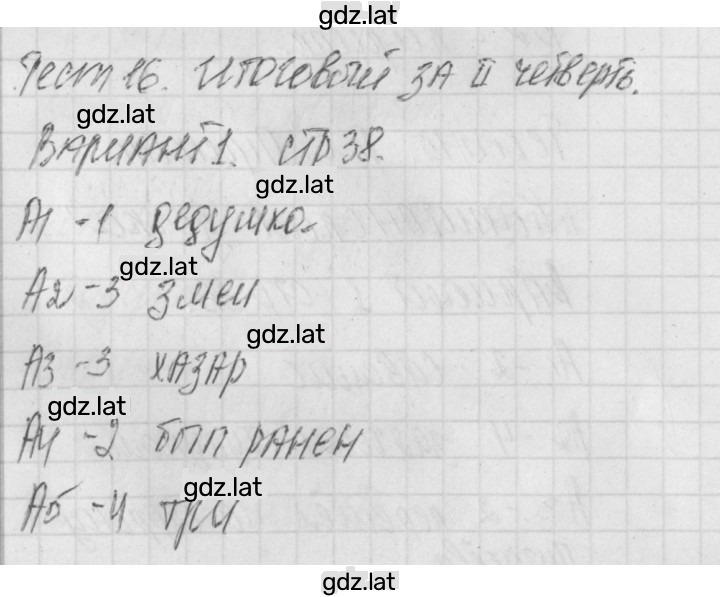 gdz.lat
Тест 16. Итоговый за II четверть.
gdz.lat
Вариант 1. стр 38.
gdz.lat
А1 - 1 дедушка.
gdz.lat
А2 - 3 змеи
gdz.lat
А3 - 3 хазар
gdz.lat
А4 - 2 был ранен
gdz.lat
А5 - 4 три
gdz.lat